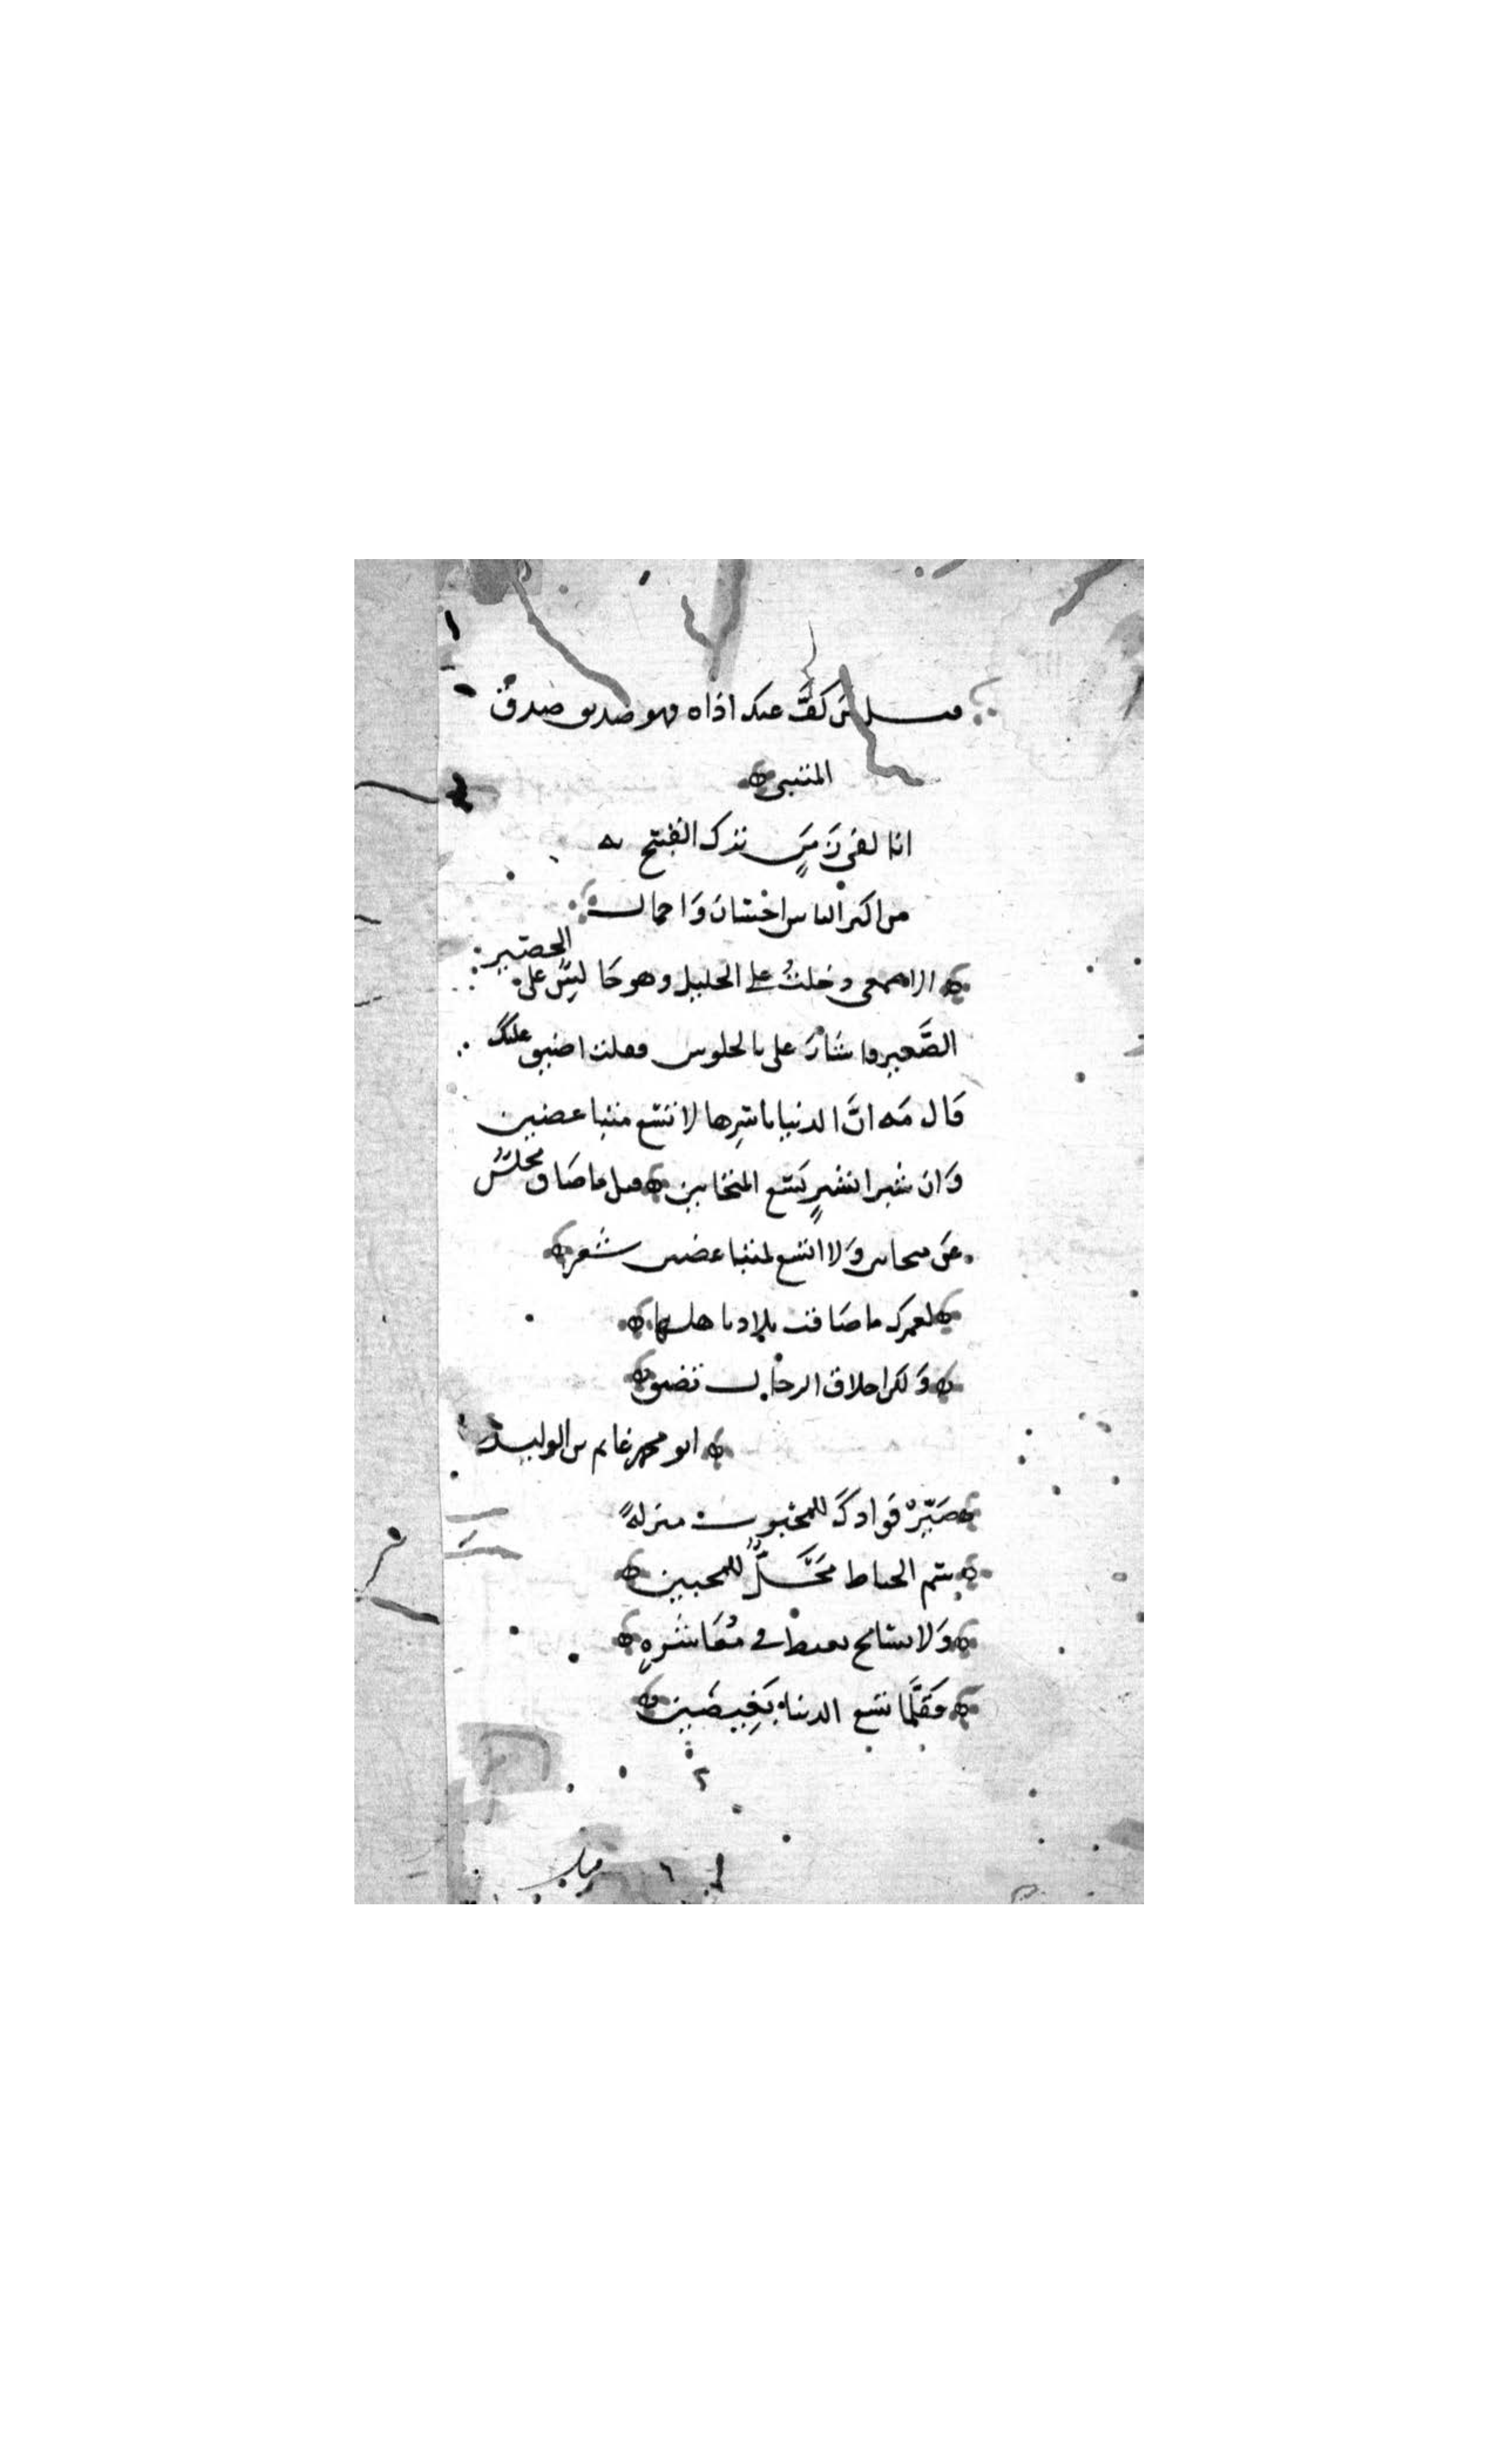 قيل من كفَّ عنك اذاه فهو صديق صدق
المتنبي
انا لفي زمنٍ ترك القبيح به
من اكثر الناس احسان واجمال
الاصمعي دخلتُ على الخليل وهو جالسٌ على الحصير
الصَّغير واشار على بالجلوس فقلت اضيق عليك
قال مَه انَّ الدنيا باسرها لا تسع متباغضين
وَان شبرا في شبرٍ يَسَع المتحابين قيل ما ضاق مجلسٌ
عن متحابين ولا اتسع لمتباغضين شعر
لعمرك ما ضاقت بلاد باهلها
وَلكن اخلاق الرجال تضيق
ابو محمد غانم بن الوليد
صَيِّرْ فَوادكَ للمحبوب منزلةً
سَم الخياط مَحَلٌّ للمحبين
وَلا تسامح بغيضا في مُعَاشَرهٍ
فَقَلَّما تسع الدنيا بَغِيضَين